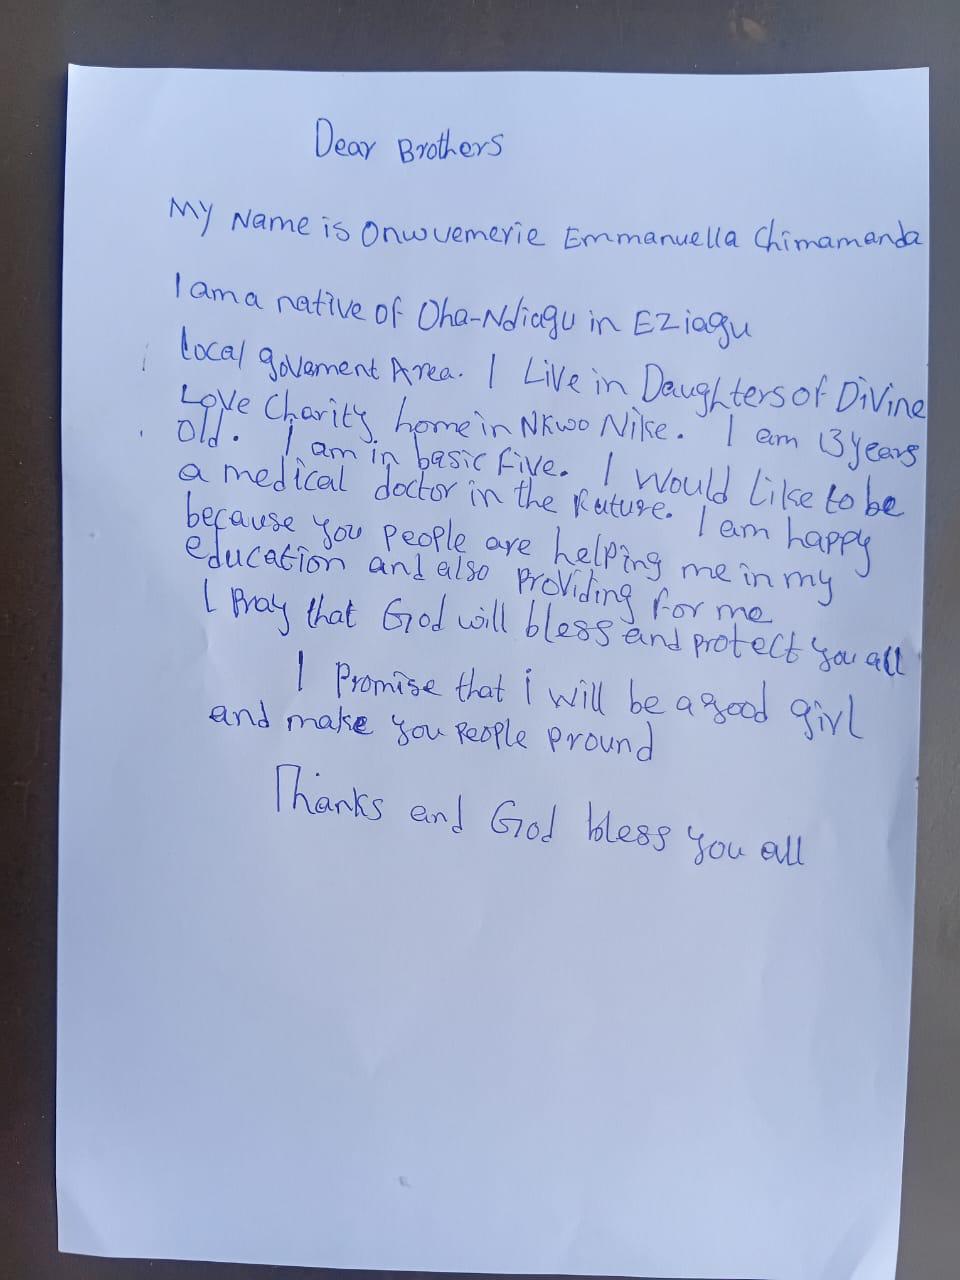 Dear Brothers
My Name is Onwuemerie Emmanuella Chimamanda
I am a native of Oha-Ndiagu in Eziagu
local govament Area. I Live in Daughters of Divine
Love Charity home in Nkwo Nike. I am 13 years
old. I am in basic five. I would like to be
a medical doctor in the future. I am happy
because you people are helping me in my
education and also providing for me
I pray that God will bless and protect you all
I Promise that i will be a good girl
and make you people pround
Thanks and God bless you all